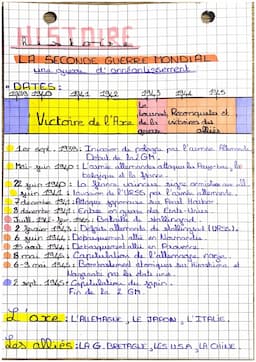 HISTOIRE
LA SECONDE GUERRE MONDIAL
une guerre d'anéantissement
• DATES:
1939 1940 1941 1942 1943 1944 1945
Victoire de l'Axe
Le tournant de la guerre
Reconquete et victoires des alliés
1er sept. 1939: Invasion de pologne par l'armée Allemande
Début de la 2GM
Mai-juin 1940: L'armée allemande attaque les Pays-bas, la
belgique et la france.
22 juin 1940: La france vaincue signe
juin 1941: Invasion de l'URSS par l'armée allemande.
7 décembre 1941: Attaque japonaise sur Pearl Harbor
8 décembre 1941: Entrée en guerre des Etats-Unis
Bataille de stalingrad
2 février 1943: Défaite allemande de stalingrad (URSS).
6 juin 1944: Débarquement allié en Normandie
15 aout 1944: Débarquement allié en Provence.
8 mai 1945: Capitulation de l'allemagne
6-9 1945: Bombardement atomique sur Hiroshima et
Nagasaki par les états unis.
2 sept. 1945: Capitulation du japon.
Fin de la 2 GM
L'axe: L'ALLEMAGNE, LE JAPON, L'ITALIE.
Les alliés: LA G. BRETAGNE, LES USA, LA CHINE.